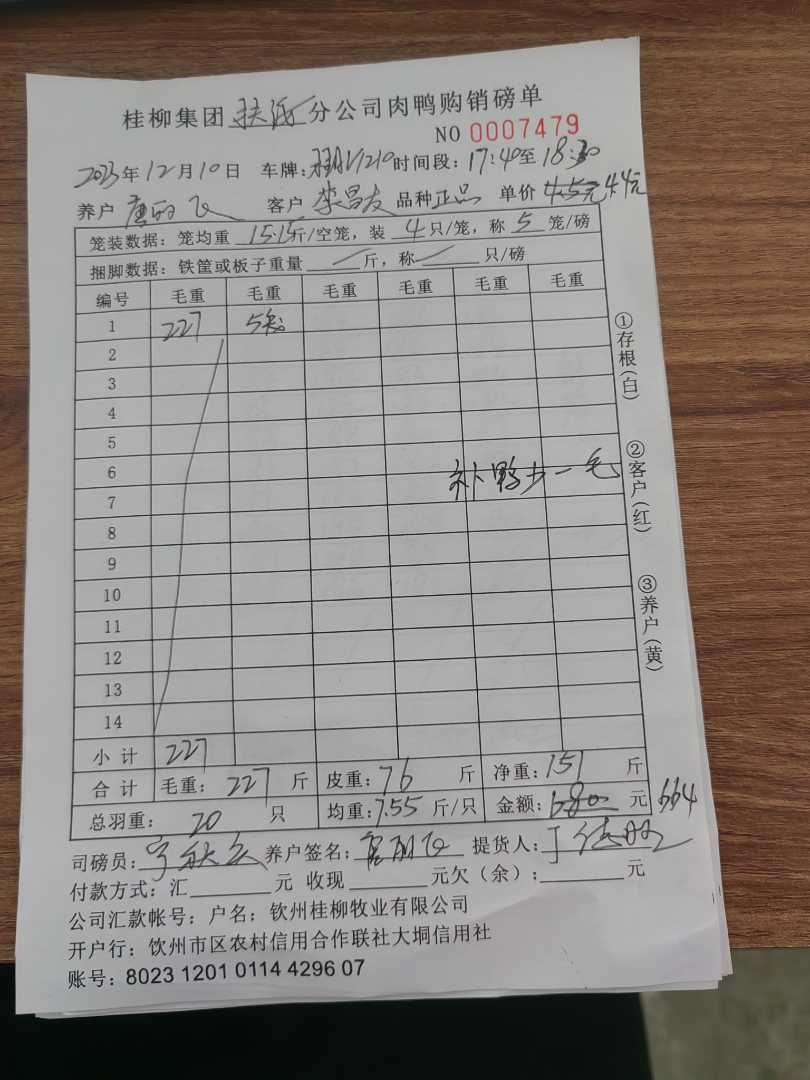 桂柳集团 扶 分公司肉鸭购销磅单
NO 0007479
2023年12月10日 车牌: 1210 时间段: 17:40至18:30
养户 唐 飞 客户 李昌友 品种 正品 单价 4.5元 4.4元
笼装数据: 笼均重 15.15斤/空笼, 装 4只/笼, 称 5 笼/磅
捆脚数据: 铁筐或板子重量 斤, 称 只/磅
编号 毛重 毛重 毛重 毛重 毛重 毛重
1 227 5
2
3
4
5
6
7
8
9
10
11
12
13
14
补鸭 少一毛
小计 227
合计 毛重: 227 斤 皮重: 76 斤 净重: 151 斤
总羽重: 20 只 均重: 7.55 斤/只 金额: 680 元 664
司磅员: 养户签名: 唐 飞 提货人:
付款方式: 汇 元 收现 元欠(余): 元
公司汇款帐号: 户名: 钦州桂柳牧业有限公司
开户行: 钦州市区农村信用合作联社大垌信用社
账号: 8023 1201 0114 4296 07
①存根(白)
②客户(红)
③养户(黄)